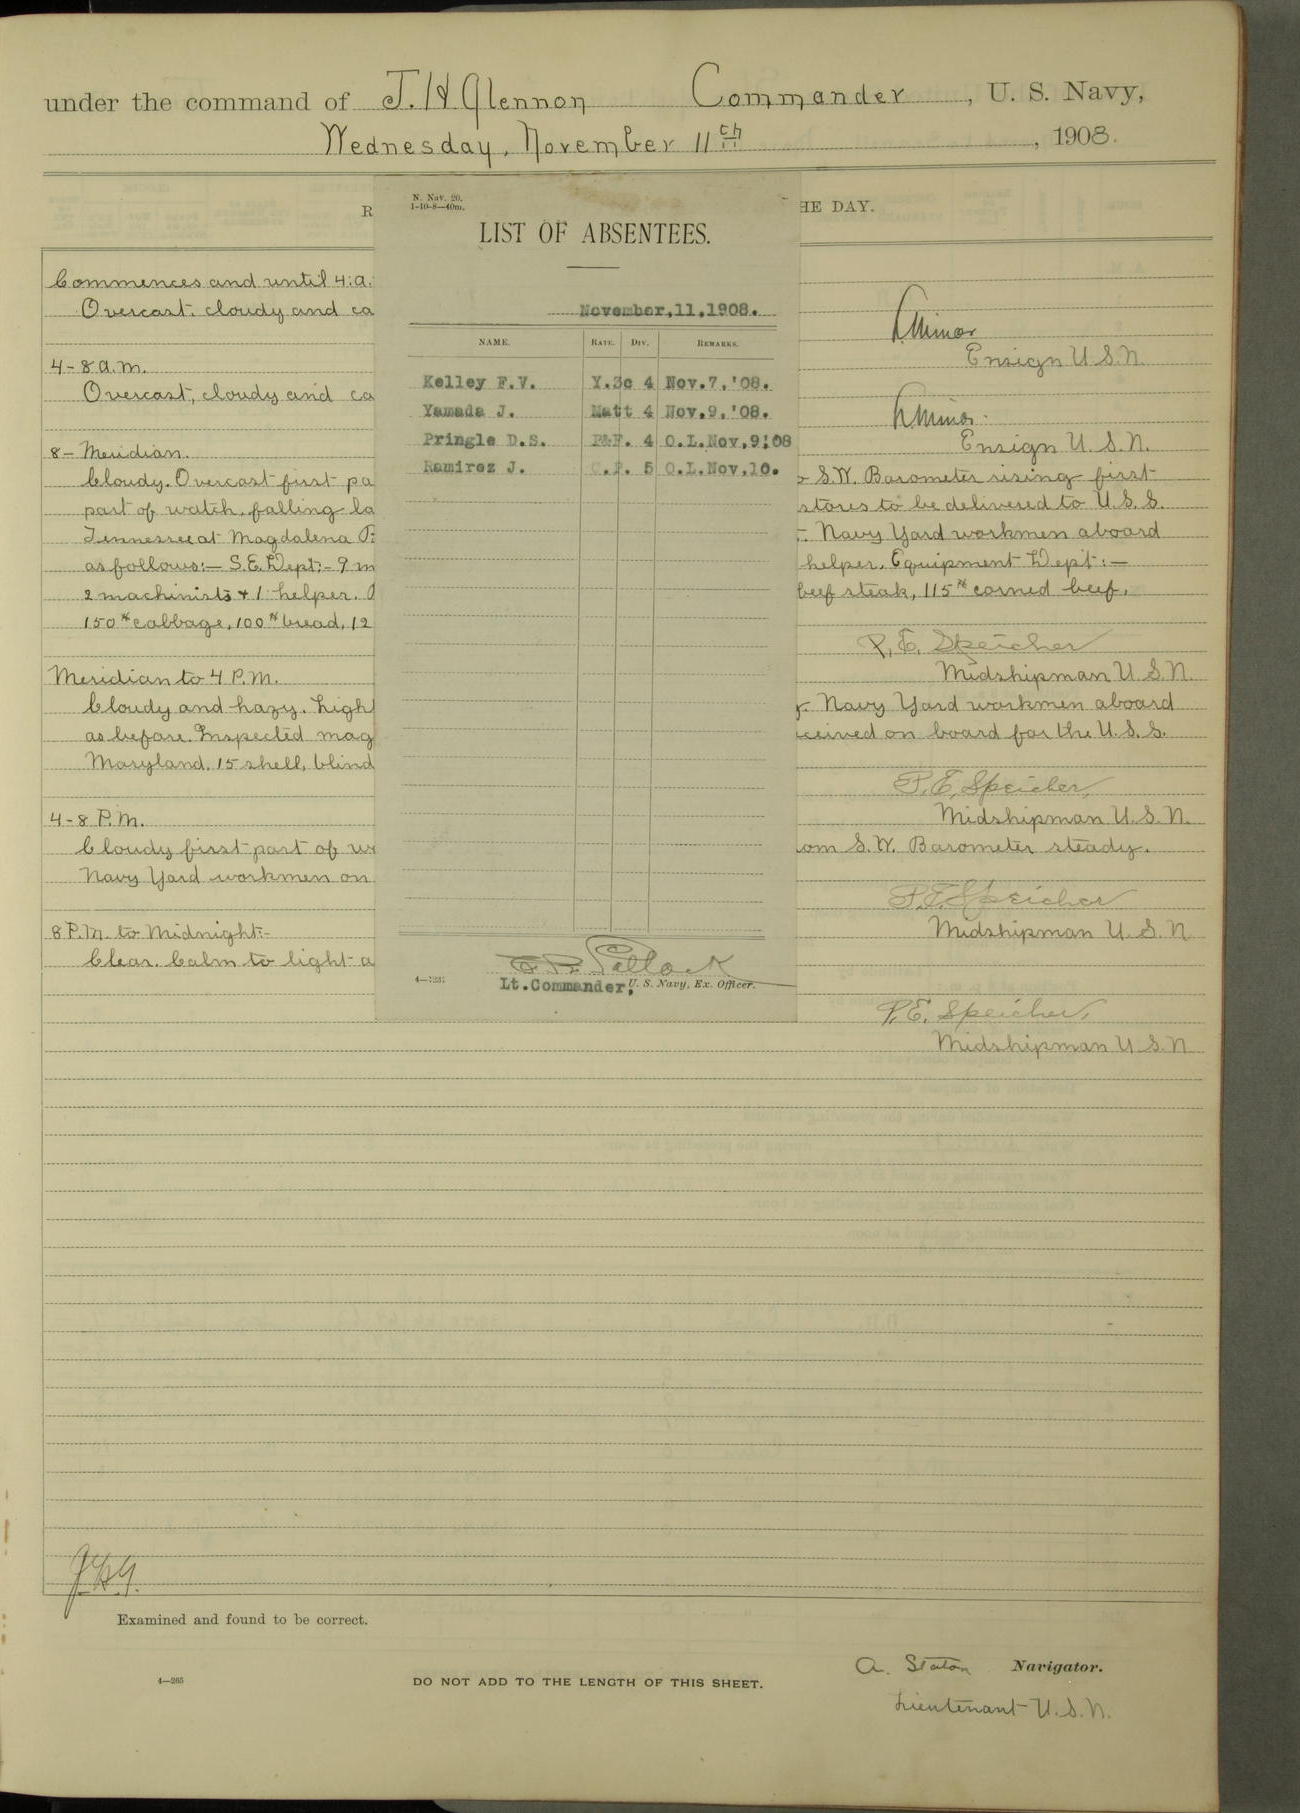 under the command of J. H. Glennon Commander, U. S. Navy,
Wednesday, November 11th, 1908.
R HE DAY.
N. Nav. 20.
1-10-8—40m.
LIST OF ABSENTEES.
November,11,1908.
NAME. RATE. DIV. REMARKS.
Kelley F.V. Y.3c 4 Nov.7,'08.
Yamada J. Matt 4 Nov.9,'08.
Pringle D.S. P&F. 4 O.L.Nov,9'08
Ramirez J. C.P. 5 O.L.Nov,10.
4—1237
Lt.Commander, U. S. Navy, Ex. Officer.
Commences and until 4:a.
Overcast, cloudy and ca
Ensign U.S.N.
4-8 a.m.
Overcast, cloudy and ca
Ensign U.S.N.
8- Meridian.
Cloudy. Overcast first pa S.W. Barometer rising first
part of watch, falling la stores to be delivered to U.S.S.
Tennessee at Magdalena B Navy Yard workmen aboard
as follows:— S.E. Dept:- 9 m helper. Equipment Dept:—
2 machinists + 1 helper. beef steak, 115# corned beef,
150# cabbage, 100# bread, 12
P. E. Speicher
Midshipman U.S.N.
Meridian to 4 P.M.
Cloudy and hazy. Ligh Navy Yard workmen aboard
as before. Inspected mag ceived on board for the U.S.S.
Maryland. 15 shell, blind
P. E. Speicher,
Midshipman U.S.N.
4-8 P.M.
Cloudy first part of w om S.W. Barometer steady.
Navy Yard workmen on
P. E. Speicher
Midshipman U.S.N
8 P.M. to Midnight:-
Clear. Calm to light a
P. E. Speicher,
Midshipman U.S.N
Examined and found to be correct.
A. Staton Navigator.
4—265 DO NOT ADD TO THE LENGTH OF THIS SHEET.
Lieutenant U.S.N.